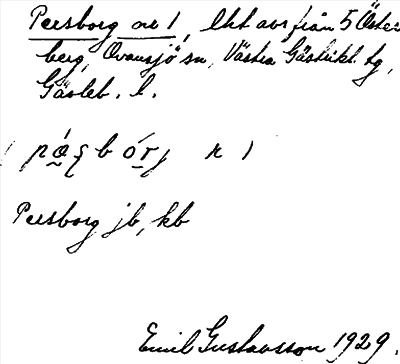 Persborg nr 1, lht avs från 5 Öster
berg, Ovansjö sn, Västra Gästrikl. tg,
Gävleb. l.
pǻʂbórj n 1
Persborg jb, kb
Emil Gustavsson 1929.